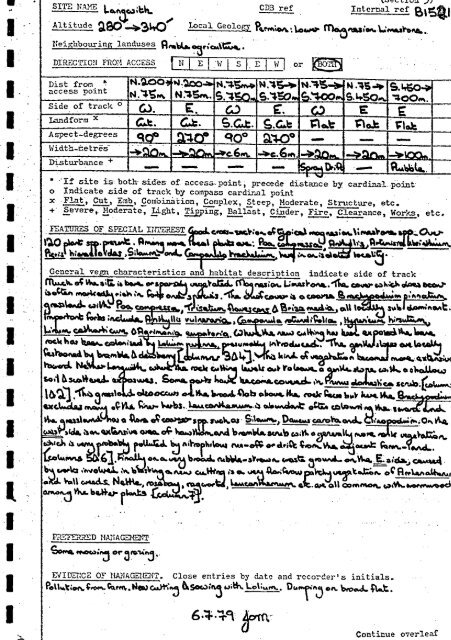 SITE NAME Langwith CDB ref Internal ref B1521
Altitude 280' → 340' Local Geology Permian: Lower Magnesian Limestone.
Neighbouring landuses Arable agriculture.
DIRECTION FROM ACCESS N E W S E W or BOTH
Dist from * access point N.200→ N.75m N.200→ N.75m. N.75m→ S.750m N.75→ S.750m N.75→ S.700m N.75→ S.450m S.450→ 700m.
Side of track o W. E. W E. W E E
Landform x Cut. Cut. S.Cut S.Cut Flat Flat Flat
Aspect-degrees 90° 270° 90° 270° — — —
Width-metres →20m →20m →c6m →c.6m →20m →20m →100m
Disturbance + — — — — Spray Drift — Rubble
* If site is both sides of access point, precede distance by cardinal point
o Indicate side of track by compass cardinal point
x Flat, Cut, Emb, Combination, Complex, Steep, Moderate, Structure, etc.
+ Severe, Moderate, Light, Tipping, Ballast, Cinder, Fire, Clearance, Works, etc.
FEATURES OF SPECIAL INTEREST Good cross-section of typical magnesian limestone spp. Over
120 plant spp. present. Among more local plants are: Poa compressa, Anthyllis, Artemisia absinthium,
Picris hieracioides, Silaum and Campanula trachelium, here in an isolated locality.
General vegn characteristics and habitat description indicate side of track
Much of the site is bare or sparsely vegetated Magnesian Limestone. The cover which does occur
is often markedly rich in forb and spp. The chief cover is a coarse Brachypodium pinnatum
grassland with Poa compressa, Trisetum flavescens & Briza media, all locally sub-dominant.
Important forbs include Anthyllis vulneraria, Campanula rotundifolia, Hypericum hirsutum,
Linum catharticum & Agrimonia eupatoria. Where the new cutting has been exposed the bare
rock has been colonised by Lolium perenne, presumably introduced. The gentle slopes are locally
festooned by bramble & dewberry [columns 3&4]. This kind of vegetation becomes more extensive
toward Nether Langwith, where the rock cutting levels out to leave a gentle slope with a shallow
soil & scattered exposures. Some parts have become covered in Prunus domestica scrub. [columns
1&2]. This grassland also occurs on the broad flats above the rock faces but here the Brachypodium
excludes many of the finer herbs. Leucanthemum is abundant often colouring the sward and
the grassland has a flora of coarser spp such as Silaum, Daucus carota and Clinopodium. On the
west side is an extensive area of hawthorn and bramble scrub with a generally more rank vegetation
which is very probably polluted by nitrophilous run-off or drift from the adjacent farm-land.
[columns 5&6]. Finally on a very broad rubble-strewn waste ground on the E. side, caused
by works involved in blasting a new cutting is a very floriferous patchy vegetation of Arrhenatherum
and tall weeds. Nettle, rosebay, ragwort, Leucanthemum etc. are all common with wormwood
among the better plants [column 7].
PREFERRED MANAGEMENT
Some mowing or grazing.
EVIDENCE OF MANAGEMENT. Close entries by date and recorder's initials.
Pollution from farm. New cutting & sowing with Lolium. Dumping on broad flat.
6.7.79
Continue overleaf